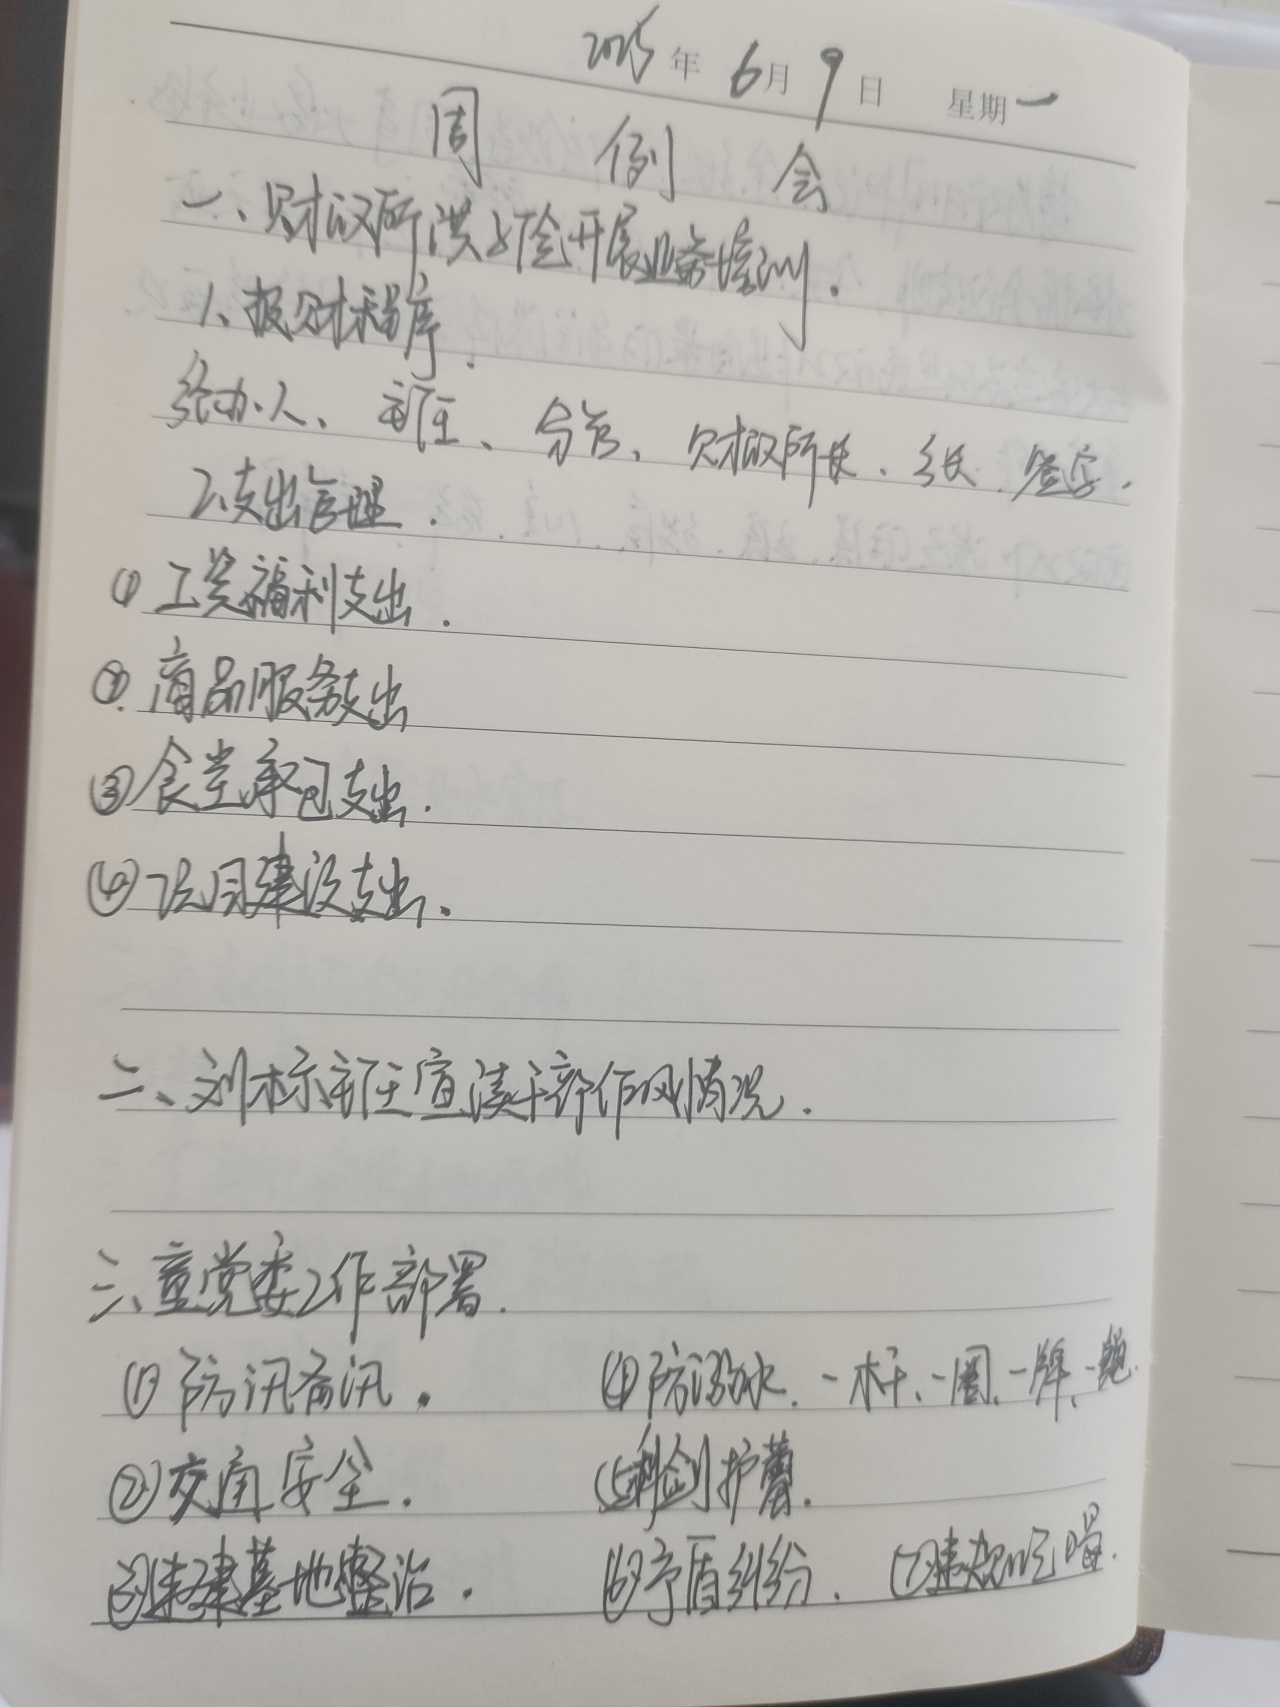 2025年 6月 9日 星期一
周 例 会
一、财政所洪上企开展业务培训.
1、报财程序.
经办人、主任、分管、财政所长、乡长 签字.
2.支出管理.
① 工资福利支出.
② 商品服务支出
③ 食堂承包支出.
④ 项目建设支出.
二、刘标主任宣读干部作风情况.
三、童党委工作部署.
① 防汛备汛. ④ 防溺水、一杆、一圈、一牌、一绳.
② 交通安全. ⑤ 利剑护蕾.
③ 违建墓地整治. ⑥ 矛盾纠纷. ⑦ 违规吃喝.